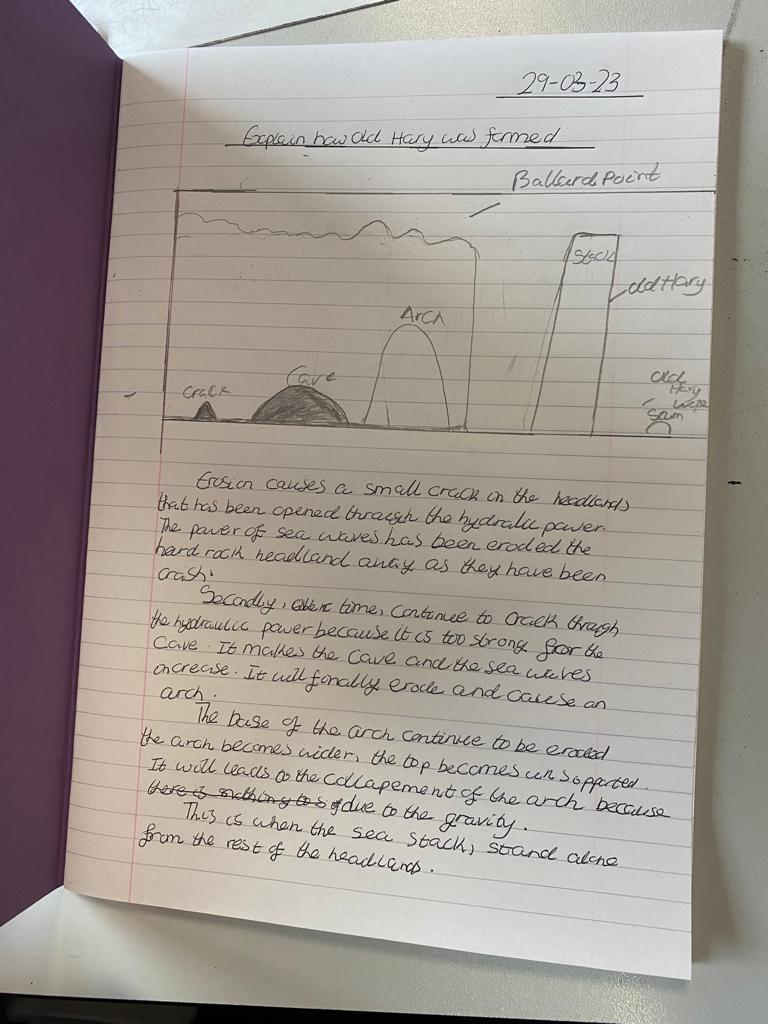 29-03-23
Explain how old Hary was formed
Ballard Point
Stack
old Hary
Arch
Cave
Crack
old
Hary
wife
Erosion causes a small crack in the headlands
that has been opened through the hydralic power.
The power of sea waves has been eroded the
hard rock headland away as they have been
crash.
Secondly, time, continue to crack through
the hydraulic power because it is too strong for the
Cave. It makes the cave and the sea waves
increase. It will finally erode and cause an
arch.
The base of the arch continue to be eroded
the arch becomes wider, the top becomes un sopported.
It will leads to the collapement of the arch because
there is nothing to due to the gravity.
This is when the sea stack, stand alone
from the rest of the headlands.